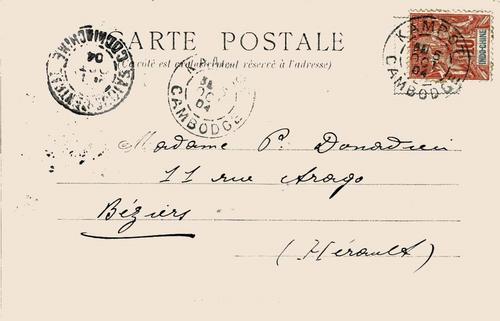 CARTE POSTALE
(Ce côté est exclusivement réservé à l'adresse)
SAIGON-CENTRAL
COCHINCHINE
04
KAMPOT
CAMBODGE
04
KAMPOT
CAMBODGE
04
INDO-CHINE
Madame P. Donadieu
11 rue Arago
Béziers
(Hérault)